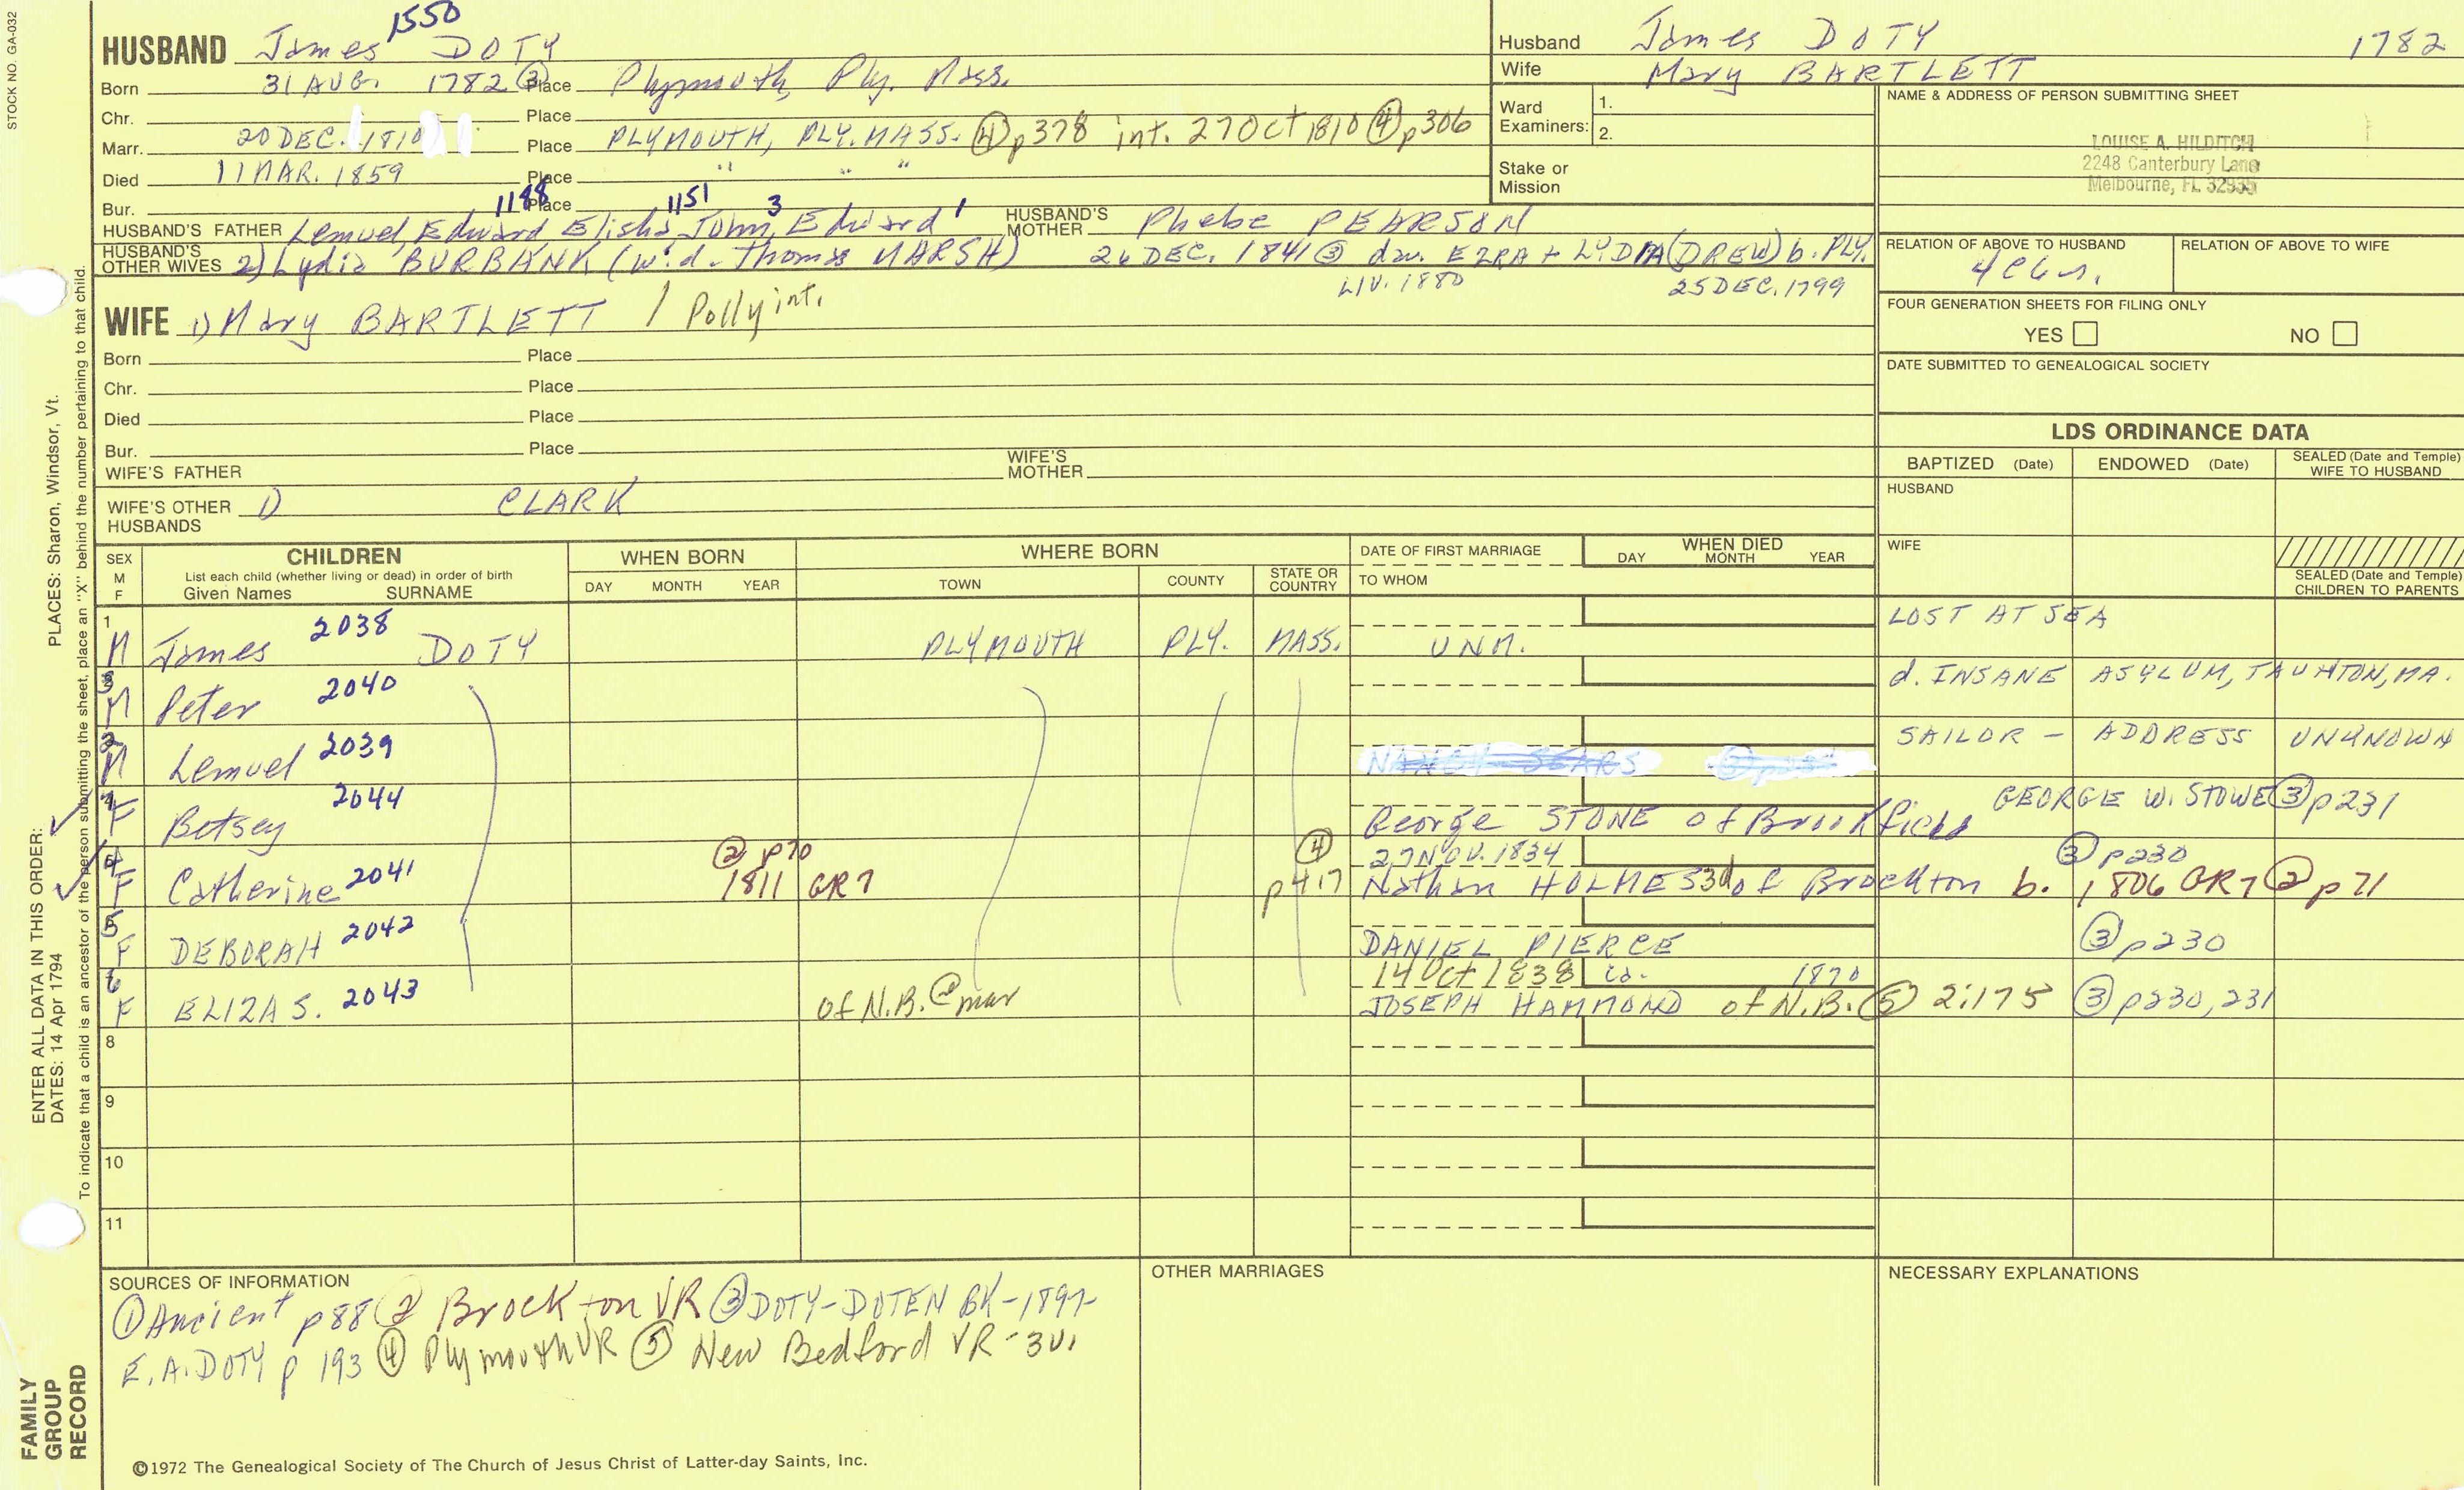 STOCK NO. GA-032
1550
HUSBAND James DOTY
Born 31 AUG. 1782 ③ Place Plymouth, Ply. Mass.
Chr. Place
Marr. 20 DEC. 1810 Place PLYMOUTH, PLY. MASS. ④ p378 int. 27 Oct 1810 ④ p306
Died 11 MAR. 1859 Place " " "
Bur. Place
1188 1151 3 1
HUSBAND'S FATHER Lemuel, Edward, Elisha, John, Edward HUSBAND'S MOTHER Phebe PEARSON
HUSBAND'S OTHER WIVES 2) Lydia BURBANK (wid. Thomas MARSH) 26 DEC. 1841 ③ dau. EZRA + LYDIA (DREW) b. PLY.
LIV. 1880 25 DEC. 1799
WIFE 1) Mary BARTLETT / Polly int.
Born Place
Chr. Place
Died Place
Bur. Place
WIFE'S FATHER WIFE'S MOTHER
WIFE'S OTHER HUSBANDS 1) CLARK
Husband James DOTY 1782
Wife Mary BARTLETT
Ward Examiners: 1.
2.
Stake or Mission
NAME & ADDRESS OF PERSON SUBMITTING SHEET
LOUISE A. HILDITCH
2248 Canterbury Lane
Melbourne, FL 32935
RELATION OF ABOVE TO HUSBAND RELATION OF ABOVE TO WIFE
FOUR GENERATION SHEETS FOR FILING ONLY
YES NO
DATE SUBMITTED TO GENEALOGICAL SOCIETY
LDS ORDINANCE DATA
BAPTIZED (Date) ENDOWED (Date) SEALED (Date and Temple) WIFE TO HUSBAND
HUSBAND
WIFE
SEALED (Date and Temple) CHILDREN TO PARENTS
SEX M F CHILDREN WHEN BORN WHERE BORN DATE OF FIRST MARRIAGE WHEN DIED
List each child (whether living or dead) in order of birth
Given Names SURNAME DAY MONTH YEAR TOWN COUNTY STATE OR COUNTRY TO WHOM DAY MONTH YEAR
1 M James 2038 DOTY PLYMOUTH PLY. MASS. UNM. LOST AT SEA
3 M Peter 2040 d. INSANE ASYLUM, TAUNTON, MA.
2 M Lemuel 2039 SAILOR - ADDRESS UNKNOWN
F Betsey 2044 George STONE of Brookfield GEORGE W. STOWE ③ p231
4 F Catherine 2041 ② p70 1811 GR7 ④ p417 27 NOV. 1834 Nathan HOLMES 3d of Brockton b. 1806 GR7 ② p71 ③ p230
5 F DEBORAH 2042 DANIEL PIERCE ③ p230
6 F ELIZA S. 2043 of N.B. @ mar 14 Oct 1838 ca. 1870 JOSEPH HAMMOND of N.B. ⑤ 2:175 ③ p230, 231
8
9
10
11
SOURCES OF INFORMATION
① Ancient p88 ② Brockton VR ③ DOTY-DOTEN BK-1897-
E. A. DOTY p 193 ④ Plymouth VR ⑤ New Bedford VR -3v.
OTHER MARRIAGES
NECESSARY EXPLANATIONS
©1972 The Genealogical Society of The Church of Jesus Christ of Latter-day Saints, Inc.
FAMILY GROUP RECORD
ENTER ALL DATA IN THIS ORDER:
DATES: 14 Apr 1794
PLACES: Sharon, Windsor, Vt.
To indicate that a child is an ancestor of the person submitting the sheet, place an "X" behind the number pertaining to that child.